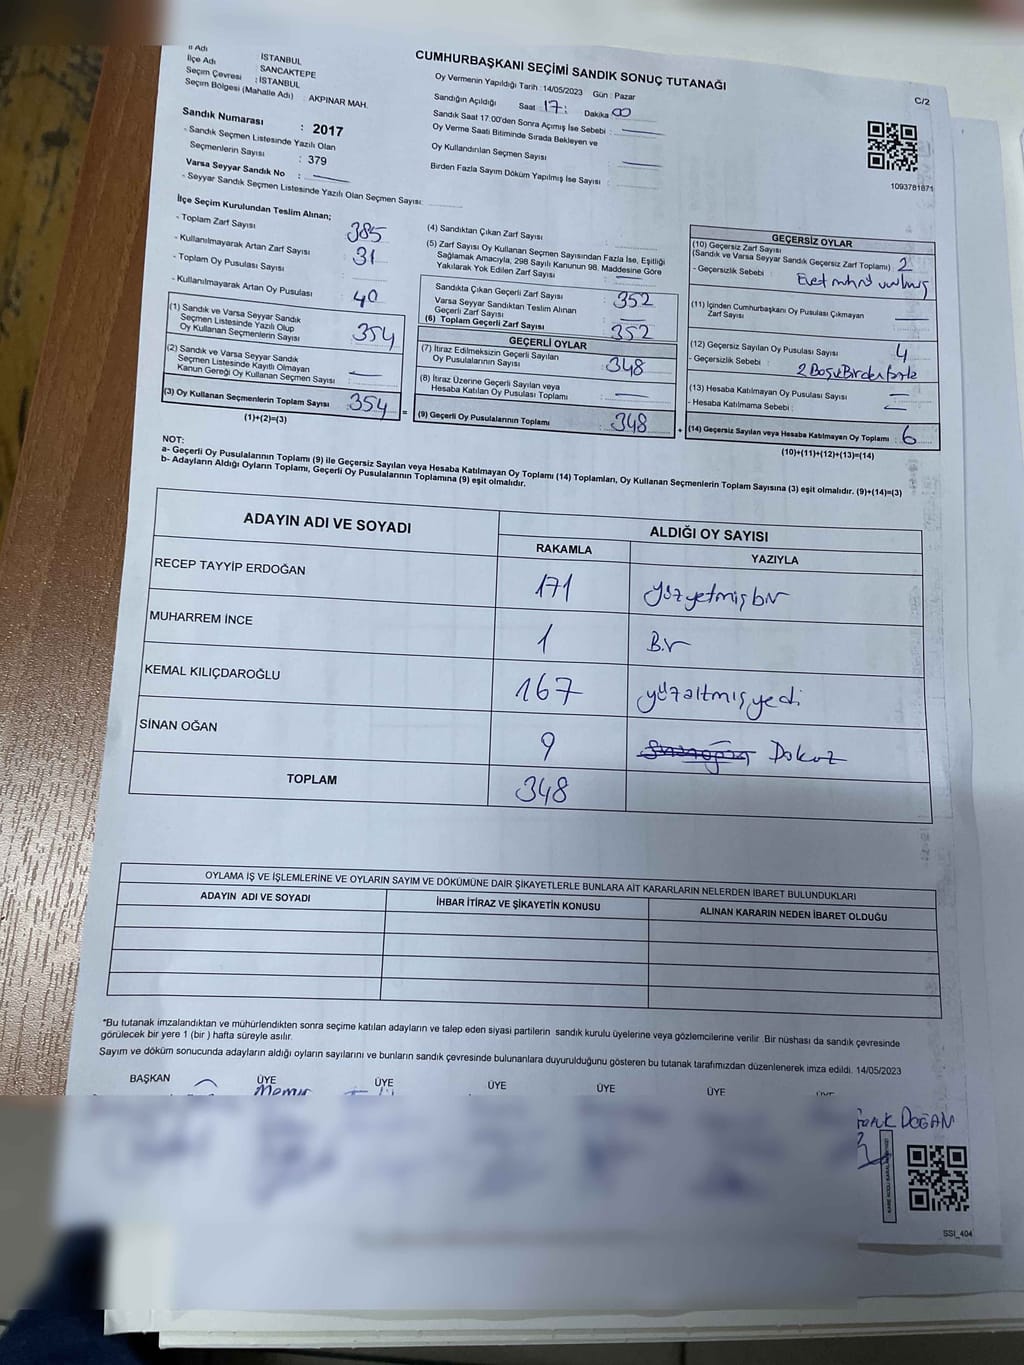 İl Adı : İSTANBUL
İlçe Adı : SANCAKTEPE
Seçim Çevresi : İSTANBUL
Seçim Bölgesi (Mahalle Adı) : AKPINAR MAH.
CUMHURBAŞKANI SEÇİMİ SANDIK SONUÇ TUTANAĞI
C/2
Oy Vermenin Yapıldığı Tarih : 14/05/2023 Gün : Pazar
Sandığın Açıldığı Saat 17: Dakika 00
Sandık Saat 17:00'den Sonra Açılmış İse Sebebi :
Oy Verme Saati Bitiminde Sırada Bekleyen ve
Oy Kullandırılan Seçmen Sayısı :
Birden Fazla Sayım Döküm Yapılmış İse Sayısı :
1093781871
Sandık Numarası : 2017
- Sandık Seçmen Listesinde Yazılı Olan
Seçmenlerin Sayısı : 379
Varsa Seyyar Sandık No :
- Seyyar Sandık Seçmen Listesinde Yazılı Olan Seçmen Sayısı:
İlçe Seçim Kurulundan Teslim Alınan;
- Toplam Zarf Sayısı 385
- Kullanılmayarak Artan Zarf Sayısı 31
- Toplam Oy Pusulası Sayısı
- Kullanılmayarak Artan Oy Pusulası 40
(1) Sandık ve Varsa Seyyar Sandık
Seçmen Listesinde Yazılı Olup
Oy Kullanan Seçmenlerin Sayısı 354
(2) Sandık ve Varsa Seyyar Sandık
Seçmen Listesinde Kayıtlı Olmayan
Kanun Gereği Oy Kullanan Seçmen Sayısı :
(3) Oy Kullanan Seçmenlerin Toplam Sayısı : 354
(1)+(2)=(3)
(4) Sandıktan Çıkan Zarf Sayısı :
(5) Zarf Sayısı Oy Kullanan Seçmen Sayısından Fazla İse, Eşitliği
Sağlamak Amacıyla, 298 Sayılı Kanunun 98. Maddesine Göre
Yakılarak Yok Edilen Zarf Sayısı :
Sandıkta Çıkan Geçerli Zarf Sayısı 352
Varsa Seyyar Sandıktan Teslim Alınan
Geçerli Zarf Sayısı
(6) Toplam Geçerli Zarf Sayısı 352
GEÇERLİ OYLAR
(7) İtiraz Edilmeksizin Geçerli Sayılan
Oy Pusulalarının Sayısı : 348
(8) İtiraz Üzerine Geçerli Sayılan veya
Hesaba Katılan Oy Pusulası Toplamı :
= (9) Geçerli Oy Pusulalarının Toplamı : 348
GEÇERSİZ OYLAR
(10) Geçersiz Zarf Sayısı
(Sandık ve Varsa Seyyar Sandık Geçersiz Zarf Toplamı) 2
- Geçersizlik Sebebi : Evet mührü vurulmuş
(11) İçinden Cumhurbaşkanı Oy Pusulası Çıkmayan
Zarf Sayısı :
(12) Geçersiz Sayılan Oy Pusulası Sayısı : 4
- Geçersizlik Sebebi : 2 Boş 2 Birden fazla
(13) Hesaba Katılmayan Oy Pusulası Sayısı
- Hesaba Katılmama Sebebi :
+ (14) Geçersiz Sayılan veya Hesaba Katılmayan Oy Toplamı : 6
(10)+(11)+(12)+(13)=(14)
NOT:
a- Geçerli Oy Pusulalarının Toplamı (9) ile Geçersiz Sayılan veya Hesaba Katılmayan Oy Toplamı (14) Toplamları, Oy Kullanan Seçmenlerin Toplam Sayısına (3) eşit olmalıdır. (9)+(14)=(3)
b- Adayların Aldığı Oyların Toplamı, Geçerli Oy Pusulalarının Toplamına (9) eşit olmalıdır.
ADAYIN ADI VE SOYADI
ALDIĞI OY SAYISI
RAKAMLA YAZIYLA
RECEP TAYYİP ERDOĞAN 171 yüzyetmişbir
MUHARREM İNCE 1 Bir
KEMAL KILIÇDAROĞLU 167 yüzaltmışyedi
SİNAN OĞAN 9 Dokuz
TOPLAM 348
OYLAMA İŞ VE İŞLEMLERİNE VE OYLARIN SAYIM VE DÖKÜMÜNE DAİR ŞİKAYETLERLE BUNLARA AİT KARARLARIN NELERDEN İBARET BULUNDUKLARI
ADAYIN ADI VE SOYADI İHBAR İTİRAZ VE ŞİKAYETİN KONUSU ALINAN KARARIN NEDEN İBARET OLDUĞU
*Bu tutanak imzalandıktan ve mühürlendikten sonra seçime katılan adayların ve talep eden siyasi partilerin sandık kurulu üyelerine veya gözlemcilerine verilir. Bir nüshası da sandık çevresinde
görülecek bir yere 1 (bir) hafta süreyle asılır.
Sayım ve döküm sonucunda adayların aldığı oyların sayılarını ve bunların sandık çevresinde bulunanlara duyurulduğunu gösteren bu tutanak tarafımızdan düzenlenerek imza edildi. 14/05/2023
BAŞKAN ÜYE ÜYE ÜYE ÜYE ÜYE ÜYE
Memur
DOĞAN
SSI_404